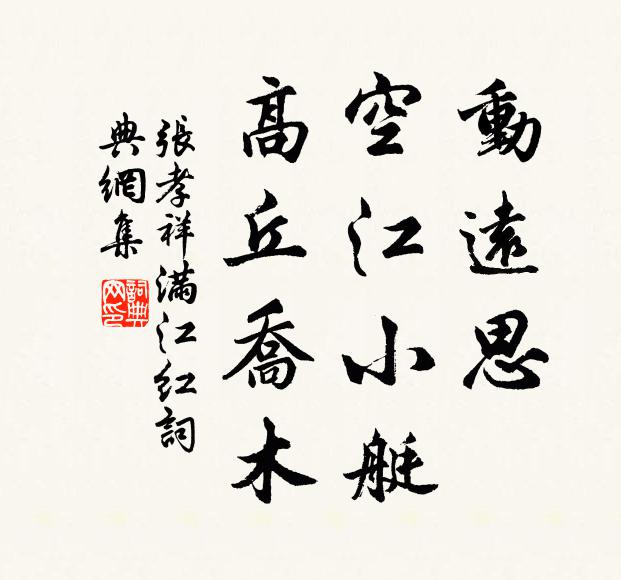 動遠思
空江小艇
高丘喬木
張孝祥滿江紅詞
典網集
詞典網印